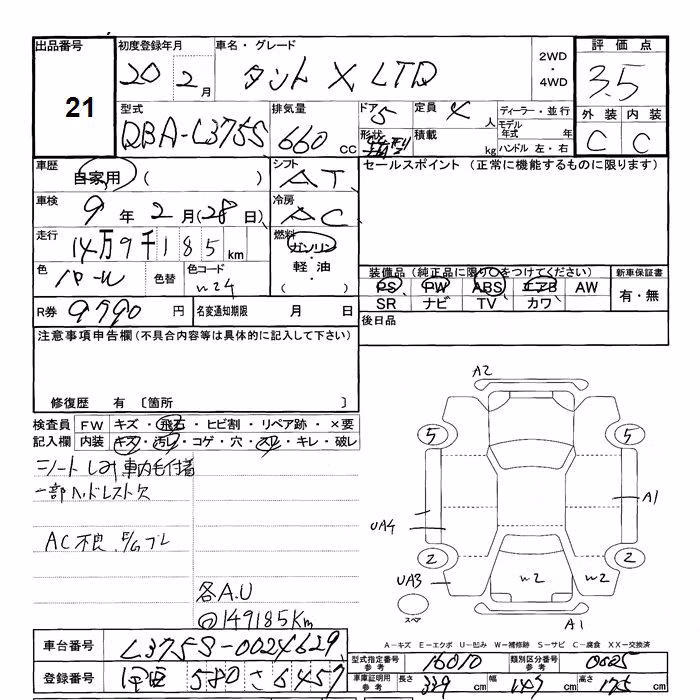 出品番号 初度登録年月 車名・グレード 2WD・4WD 評価点
21 20 2月 タント X LTD 3.5
型式 排気量 ドア 5 定員 4人 ディーラー・並行 外装 内装
DBA-L375S 660cc 形状 積載 kg モデル年式 年 C C
ハンドル 左・右
車歴 自家用 ( ) シフト AT セールスポイント (正常に機能するものに限ります)
車検 9年 2月(28日) 冷房 AC
走行 14万9千185km 燃料 ガソリン・軽油・( )
色 パール 色替 色コード W24
装備品(純正品に限り○をつけてください) 新車保証書
PS PW ABS エアB AW 有・無
SR ナビ TV カワ
R券 9790円 名変通知期限 月 日 後日品
注意事項申告欄(不具合内容等は具体的に記入して下さい)
修復歴 有 〔箇所 〕
検査員 FW キズ・飛石・ヒビ割・リペア跡・×要
記入欄 内装 キズ・汚レ・コゲ・穴・スレ・キレ・破レ
シートしみ 車内毛付着
一部ヘッドレスト欠
AC不良
各A.U
149185Km
A2
5 5
A1
UA4
2 2
UA3 W2 W2
スペア
A1
A-キズ E-エクボ U-凹み W-補修跡 S-サビ C-腐食 XX-交換済
車台番号 L375S-0024629
型式指定番号参考 16010 類別区分番号参考 0025
登録番号 580 さ 6457
車庫証明用参考 長さ 339cm 幅 147cm 高さ 175cm